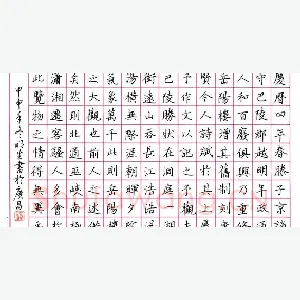 慶曆四年春滕子京謫
守巴陵郡越明年政通
人和百廢具興乃重修
岳陽樓增其舊制刻唐
賢今人詩賦於其上屬
予作文以記之予觀夫
巴陵勝狀在洞庭一湖
銜遠山吞長江浩浩湯
湯橫無際涯朝暉夕陰
氣象萬千此則岳陽樓
之大觀也前人之述備
矣然則北通巫峽南極
瀟湘遷客騷人多會於
此覽物之情得無異乎
甲申年冬書於廣昌